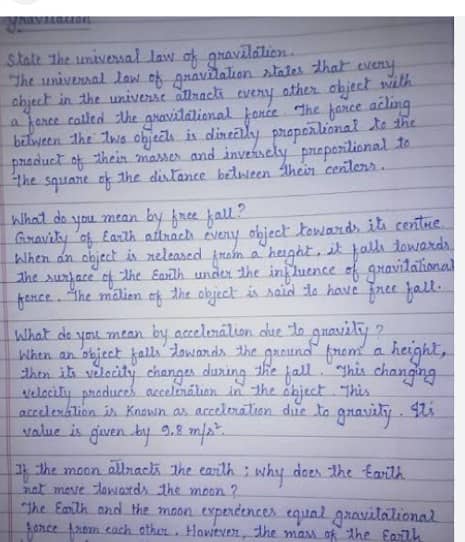 Gravitation
State the universal law of gravitation.
The universal law of gravitation states that every
object in the universe attracts every other object with
a force called the gravitational force. The force acting
between the two objects is directly proportional to the
product of their masses and inversely proportional to
the square of the distance between their centers.
What do you mean by free fall?
Gravity of Earth attracts every object towards its centre.
When an object is released from a height, it falls towards
the surface of the Earth under the influence of gravitational
force. The motion of the object is said to have free fall.
What do you mean by acceleration due to gravity?
When an object falls towards the ground from a height,
then its velocity changes during the fall. This changing
velocity produces acceleration in the object. This
acceleration is known as acceleration due to gravity. Its
value is given by 9.8 m/s².
If the moon attracts the earth ; why does the Earth
not move towards the moon?
The Earth and the moon experiences equal gravitational
force from each other. However, the mass of the Earth